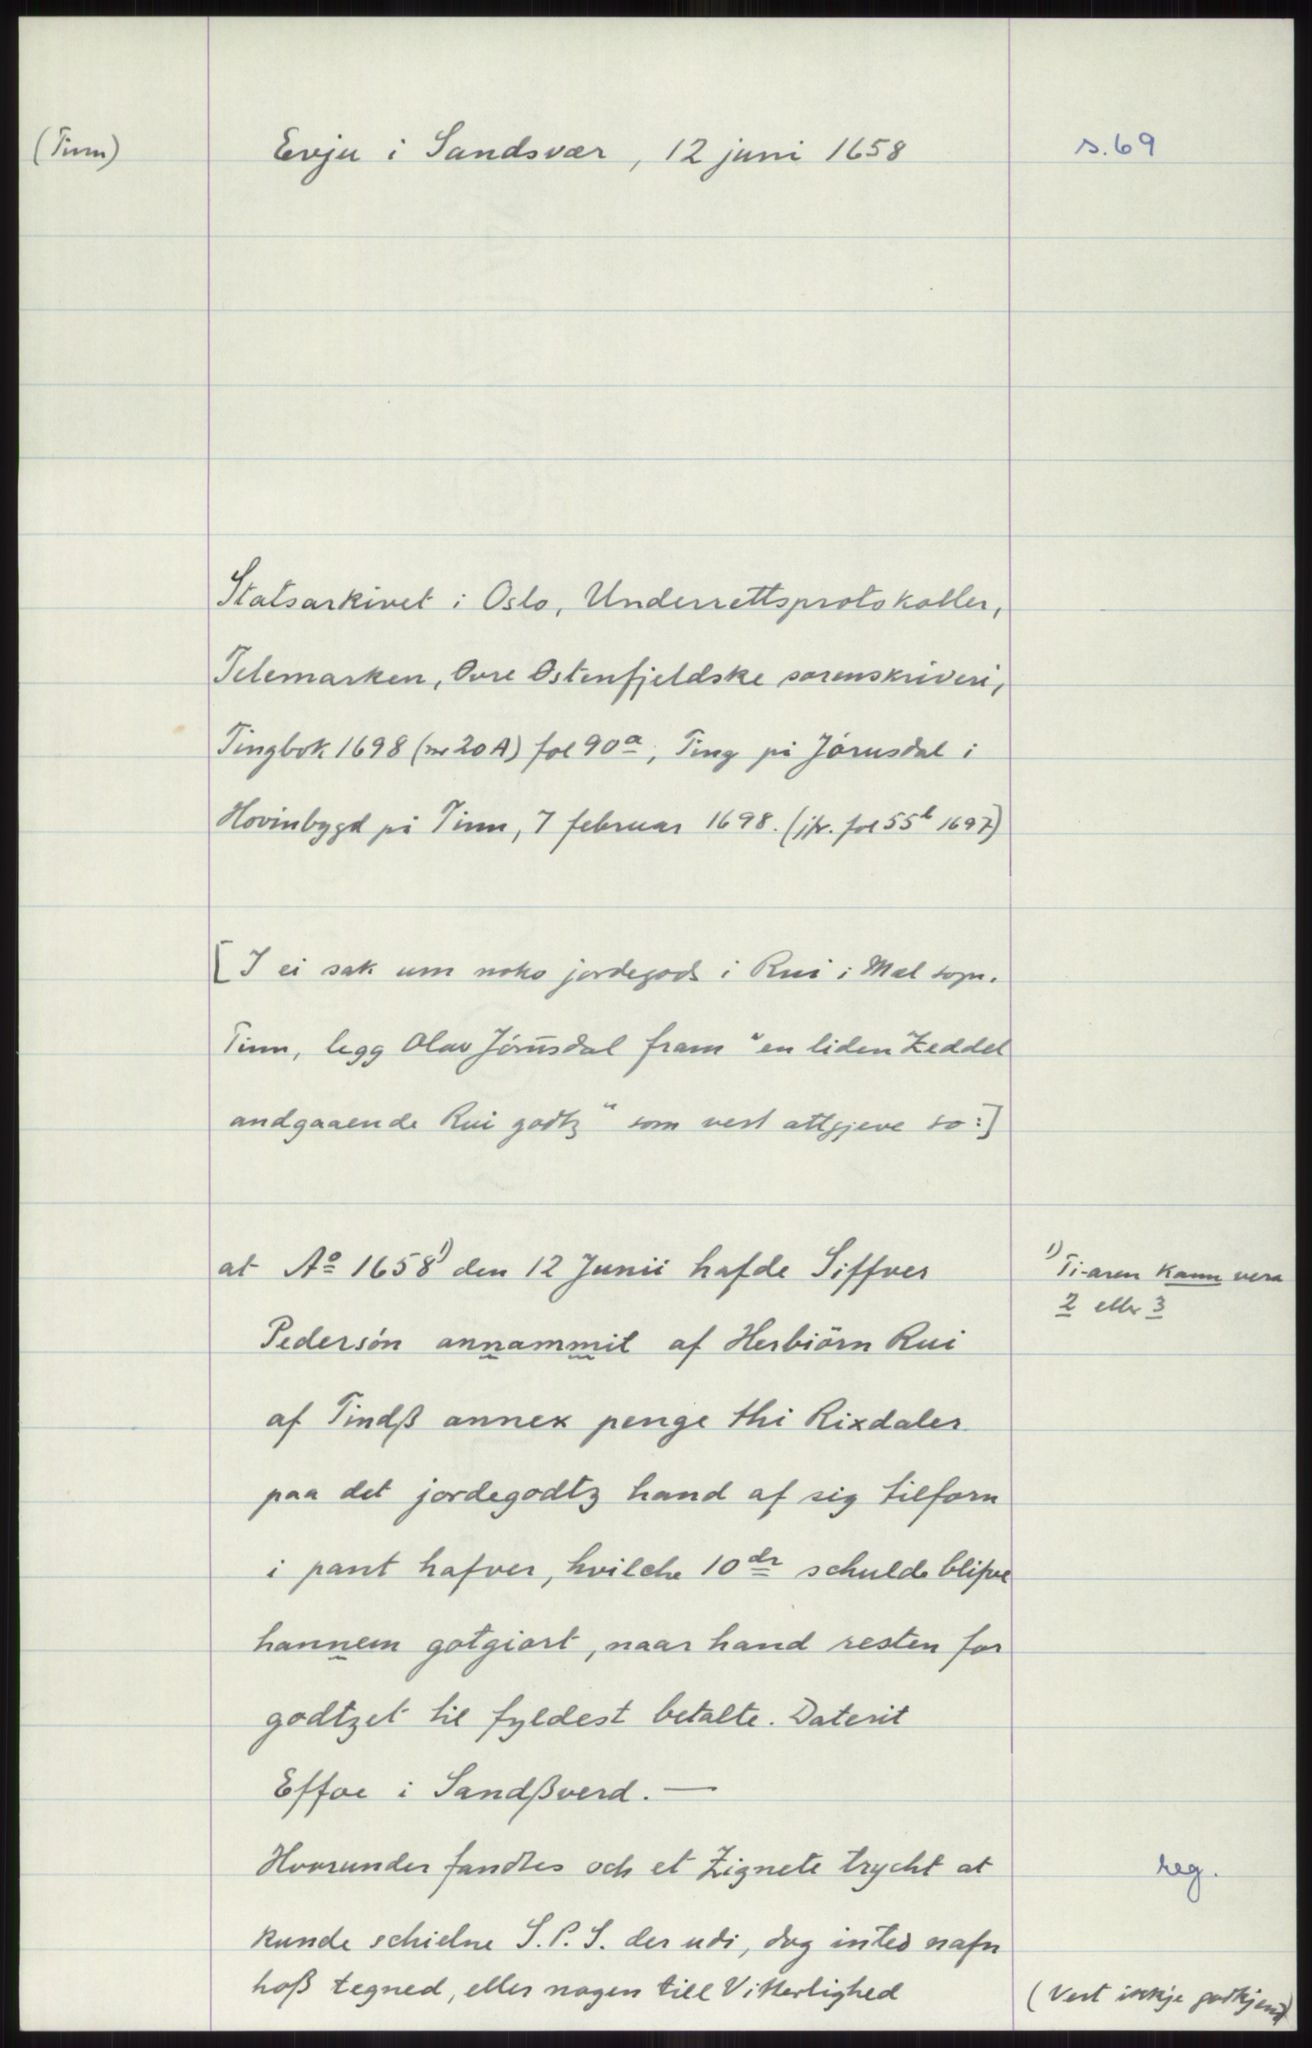 (Tinn)
Evju i Sandsvær, 12 juni 1658
s.69
Statsarkivet i Oslo, Underrettsprotokoller,
Telemarken, Øvre Østenfjeldske sorenskriveri,
Tingbok 1698 (nr 20 A) fol 90a, Ting på Jórusdal i
Hovinbygd på Tinn, 7 februar 1698. (jfr. fol 55b 1697)
[I ei sak um noko jordegods i Rui i Mæl sogn.
Tinn, legg Olav Jórusdal fram "en liden Zeddel
andgaaende Rui godtz" som vert attgjeve so:]
at Ao 1658 1) den 12 Junii hafde Siffver
1) Ti-aren kann vera
2 eller 3
Pedersön annammit af Herbiörn Rui
af Tindß annex penge thi Rixdaler
paa det jordegodtz hand af sig tilforn
i pant hafver, hvilche 10 dr schulde blifve
hannem gotgiort, naar hand resten for
godtzet til fyldest betalte. Daterit
Effve i Sandßverd. —
Hvorunder fandtes och et Zignete trycht at
reg.
kunde schielne S.P.S. der udi, dog inted nafn
hoß tegned, eller nogen till Vitterlighed
(Vert ikkje godkjend)